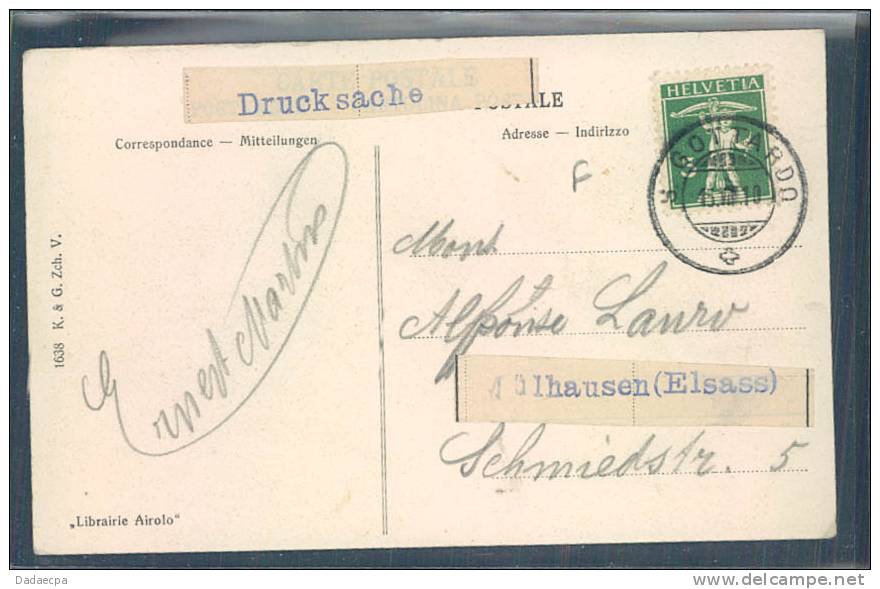 CARTE POSTALE
Drucksache
POSTALE
Correspondance — Mitteilungen
Adresse — Indirizzo
HELVETIA
S. GOTTARDO
F
Mons
Alphonse Lauro
ülhausen (Elsass)
Schmiedstr. 5
Ernest Martin
1638 K. & G. Zch. V.
„Librairie Airolo"
Dadaecpa
www.delcampe.net